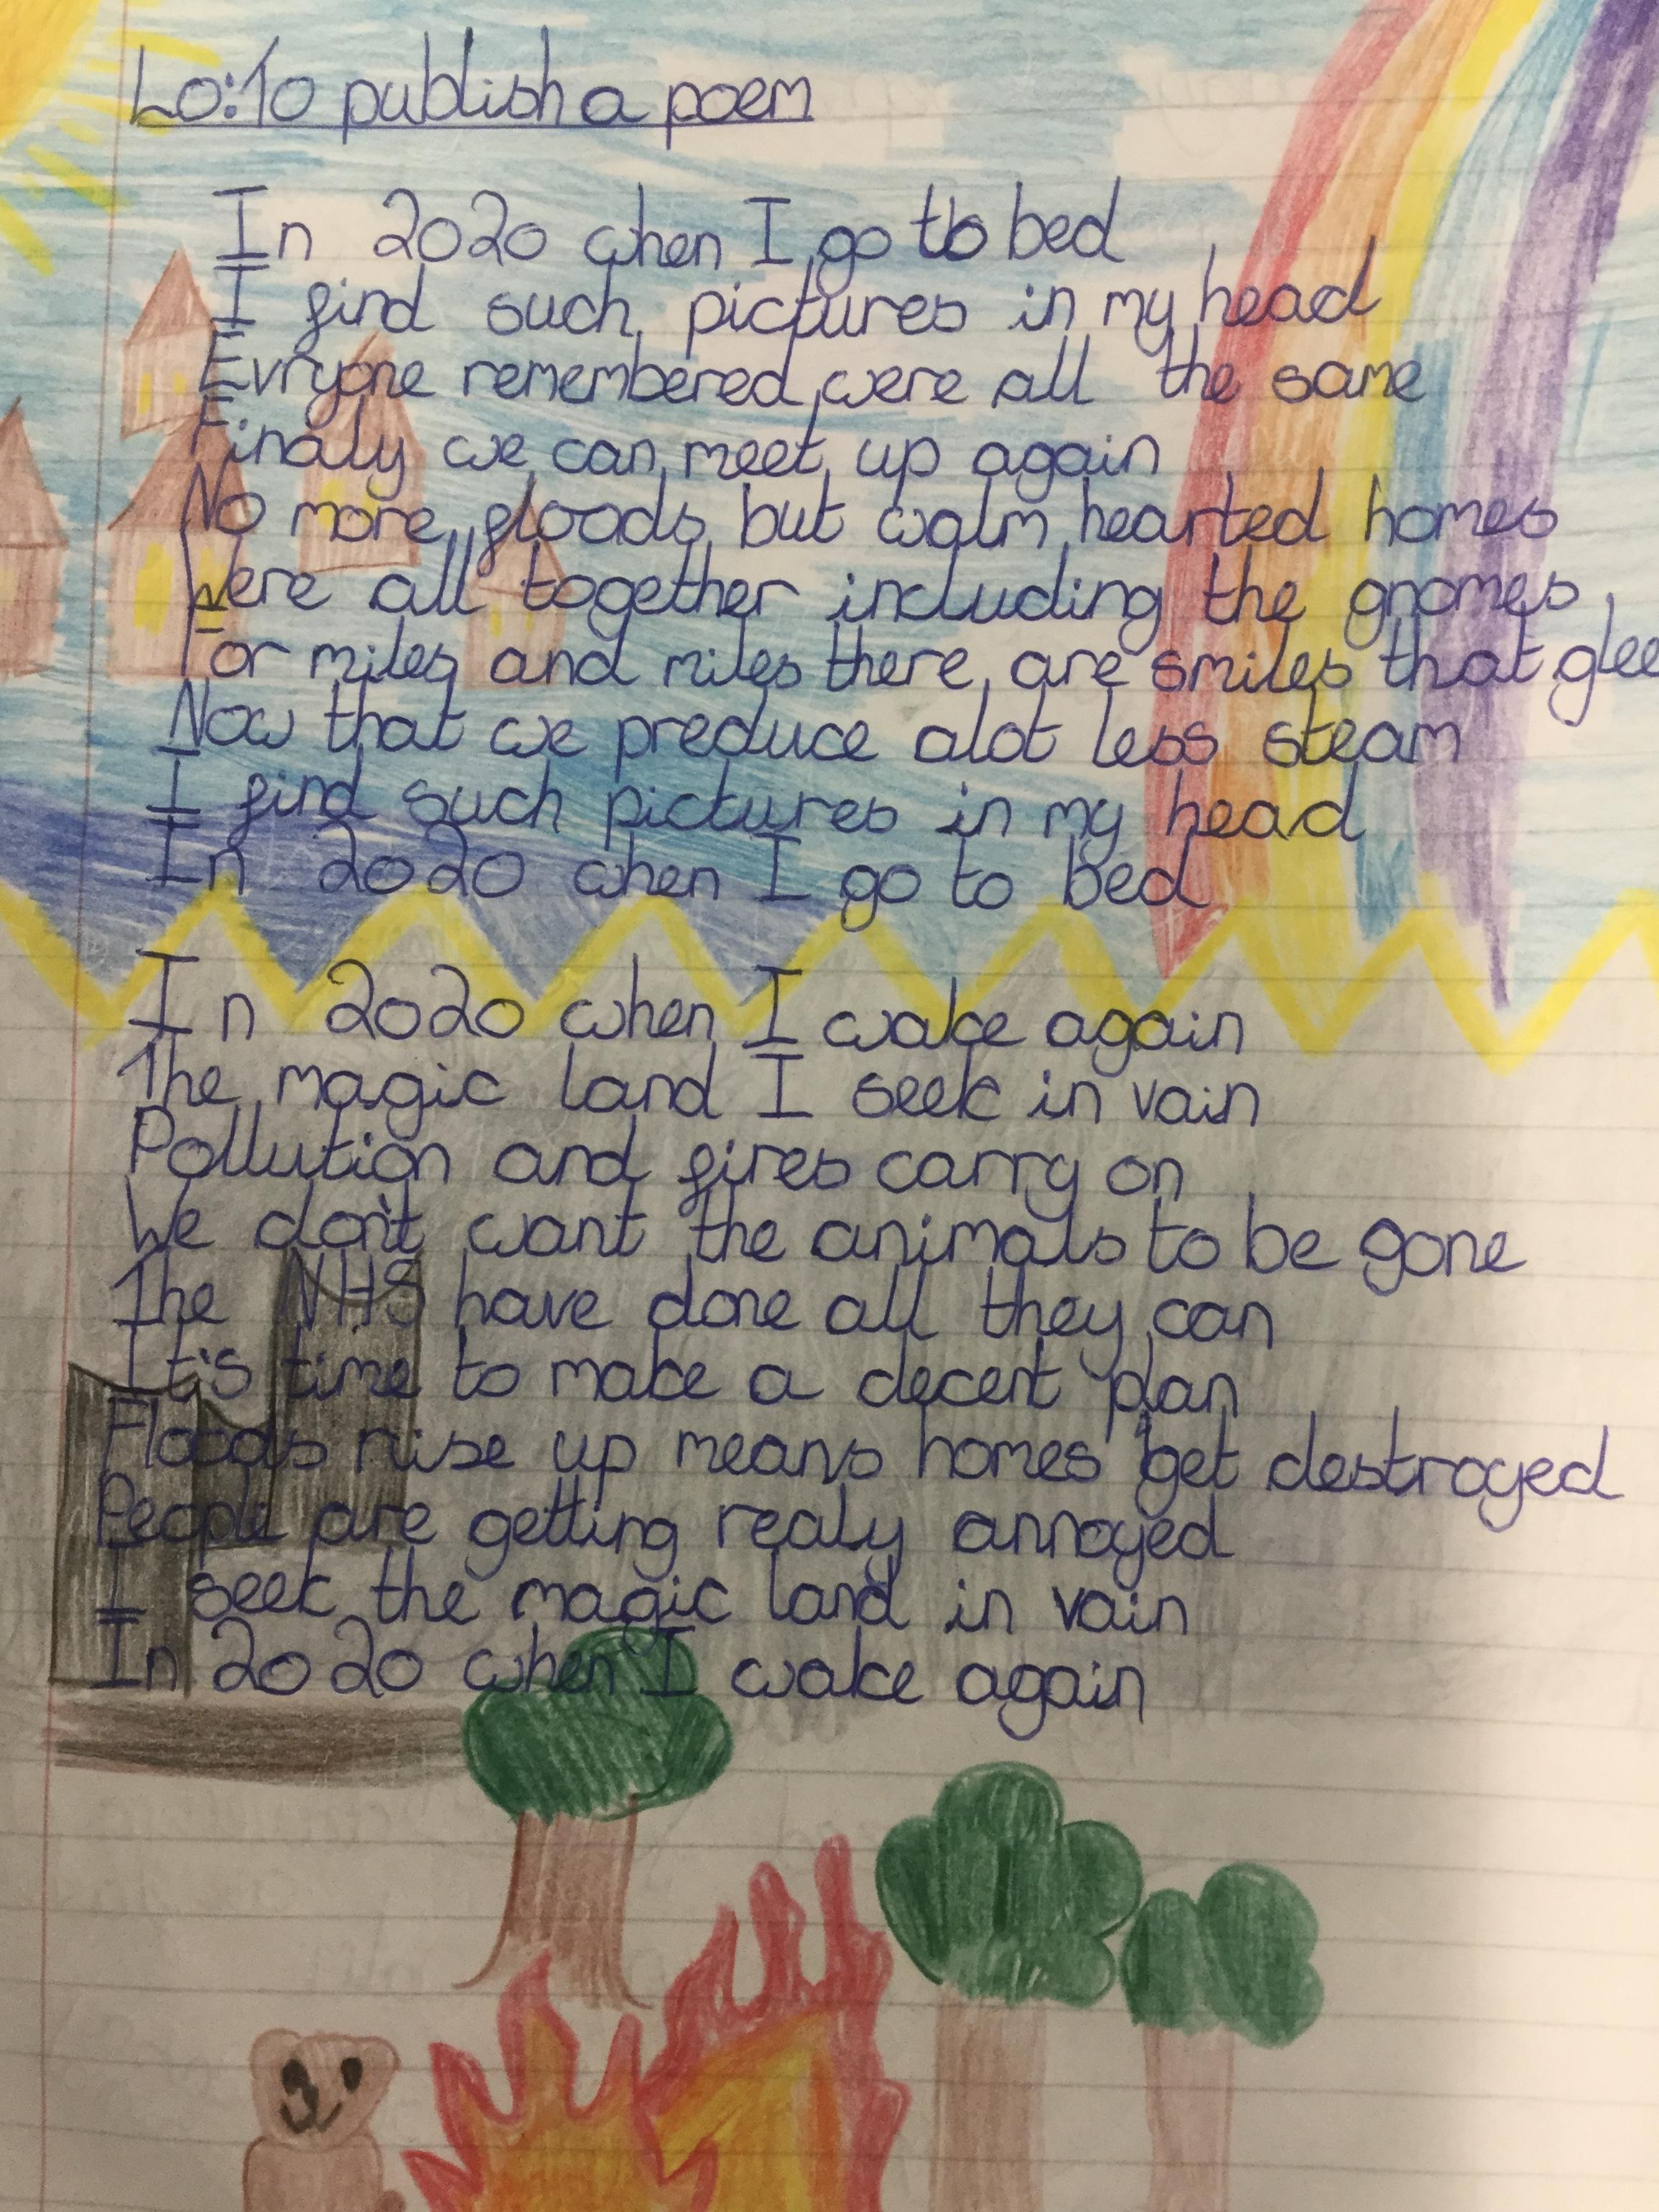 Lo: To publish a poem
In 2020 when I go to bed
I find such pictures in my head
Evryone remembered were all the same
Finaly we can meet up again
No more floods but walm hearted homes
Were all together including the gnomes
For miles and miles there are smiles that glee
Now that we preduce alot less steam
I find such pictures in my head
In 2020 when I go to bed
In 2020 when I wake again
The magic land I seek in vain
Pollution and fires carry on
We don't want the animals to be gone
The NHS have done all they can
It's time to make a decent plan
Floods rise up means homes get destroyed
People are getting realy annoyed
I seek the magic land in vain
In 2020 when I wake again